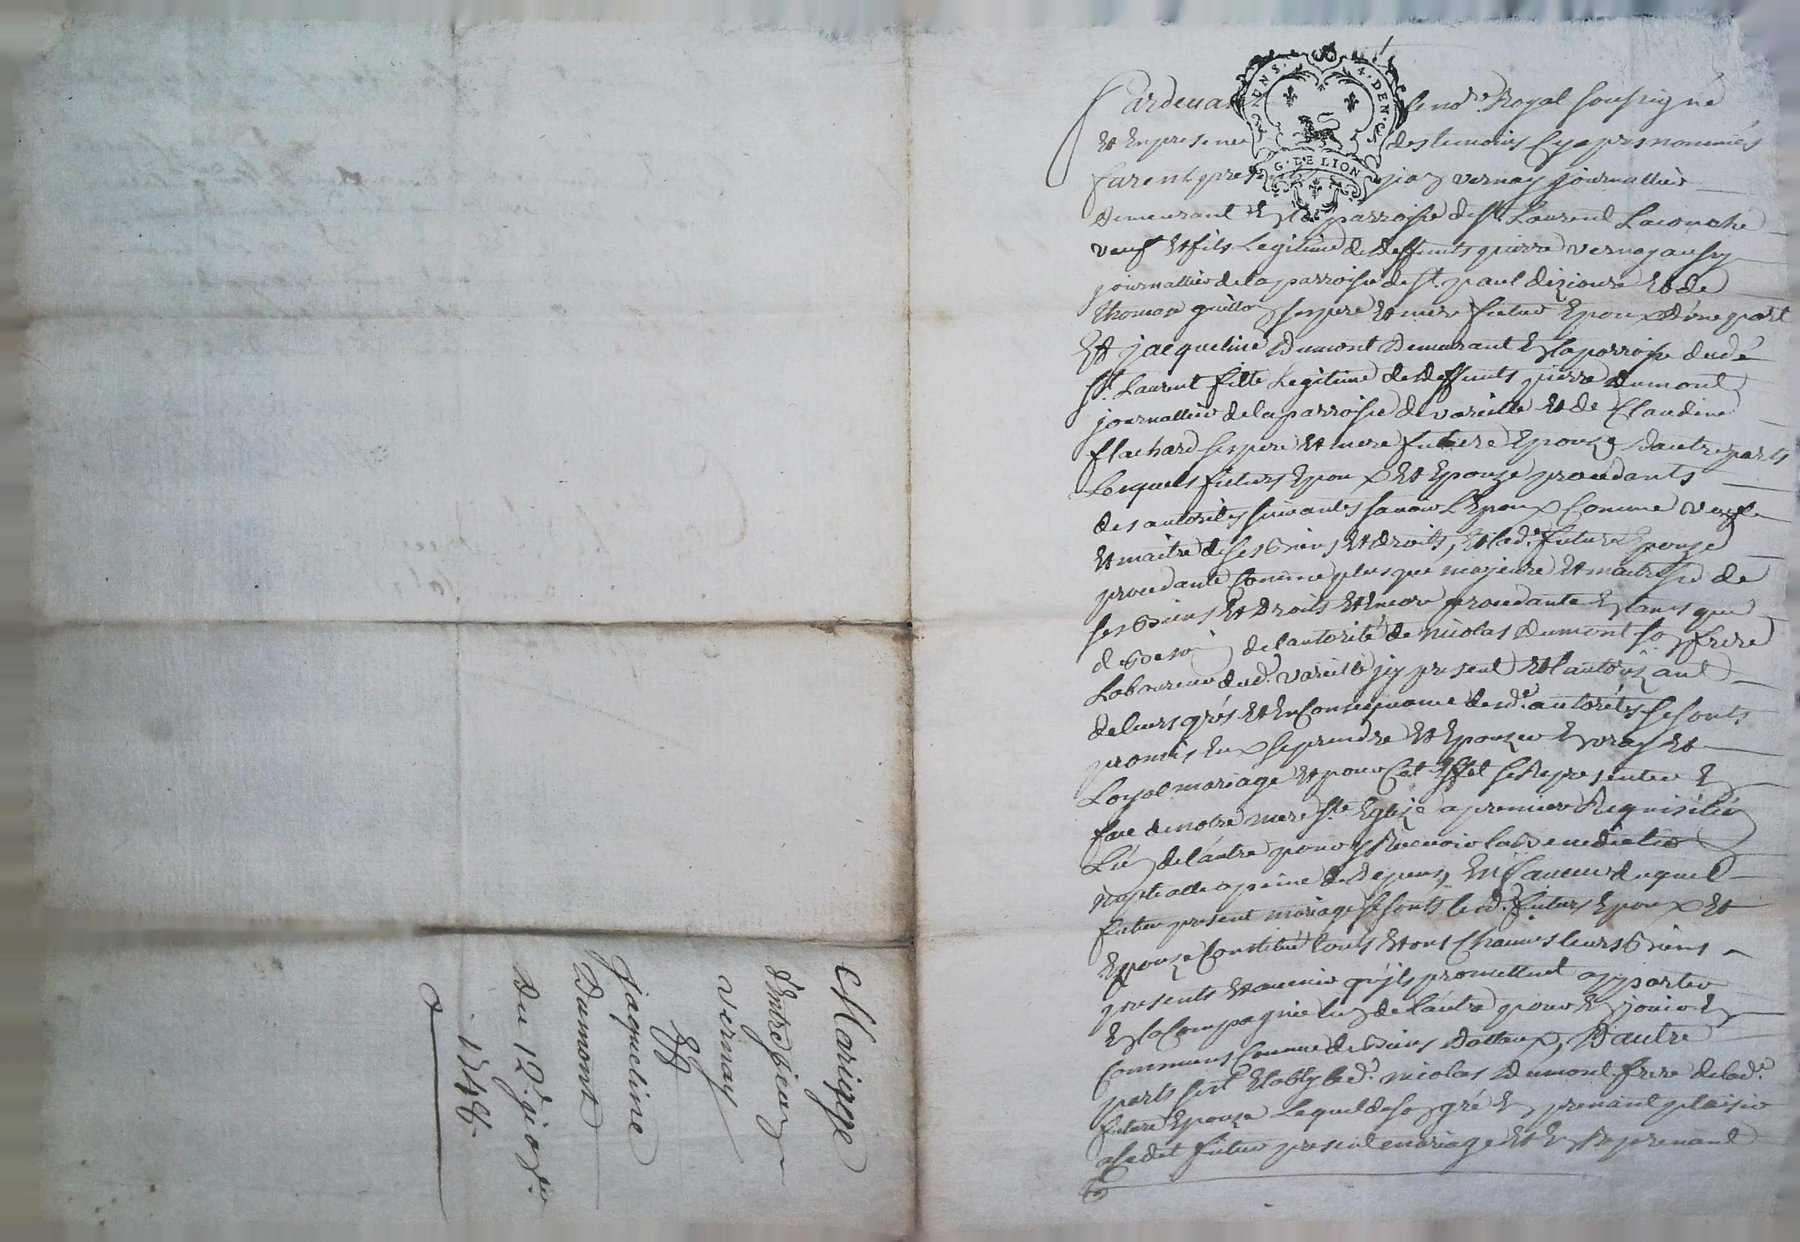 Pardevant le no.re Royal soussigné
Et En presence des temoins Cyapres nommés
furent presents jean vernay journallier
demeurant En la parroisse de St. Laurent Laconche
veuf Et fils Legitime de deffunts pierre vernay aussy
journallier de la parroisse de St. paul dizioure Et de
thomase guillon ses pere Et mere futur Epoux d'une part
Et jacqueline Dumont Demeurant En la parroisse dudt
St. Laurent fille Legitime de deffunts pierre Dumont
journallier de la parroisse de vareille Et de Claudine
flachard ses pere Et mere future Epouze dautre parts
Lesquels futurs Epoux Et Epouze procedants
des autorités suivantes savoir L'Epoux Comme veuf
Et maitre de ses biens Et droits, Et lad.e future Epouze
procedante Comme plus que majeure Et maitresse de
ses biens Et droits Et Encore procedante En tant que
de besoin de l'autorité de nicolas Dumont son frere
Laboureur dud. vareille jcy present Et l'autorizant
de leurs grés Et En Consequance desd.e autorités se sonts
promis Eux se prendre Et Epouzer En vray Et
Loyal mariage Et pour Cet Effet se Representer En
face de notre mere Ste Eglize a premiere Requisition
L'un de l'autre pour y Recevoir la benediction
nuptialle a peine de depens, En faveur duquel
futur present mariage se sonts lesd. futurs Epoux Et
Epouze Constitué touts Et uns Chacuns leurs biens
presents Et avenir qu'ils promettent apporter
En la Compagnie l'un de l'autre pour En jouir En
Commun Comme de biens dottaux, D'autre
parts s'est Etably led. nicolas Dumont frere de lad.e
future Epouze Lequel de son gré En prenant plaisir
a sedit futur present mariage Et En Reprenant
Mariage
d'Entre jean
vernay
Et
jaqueline
Dumont
Du 12